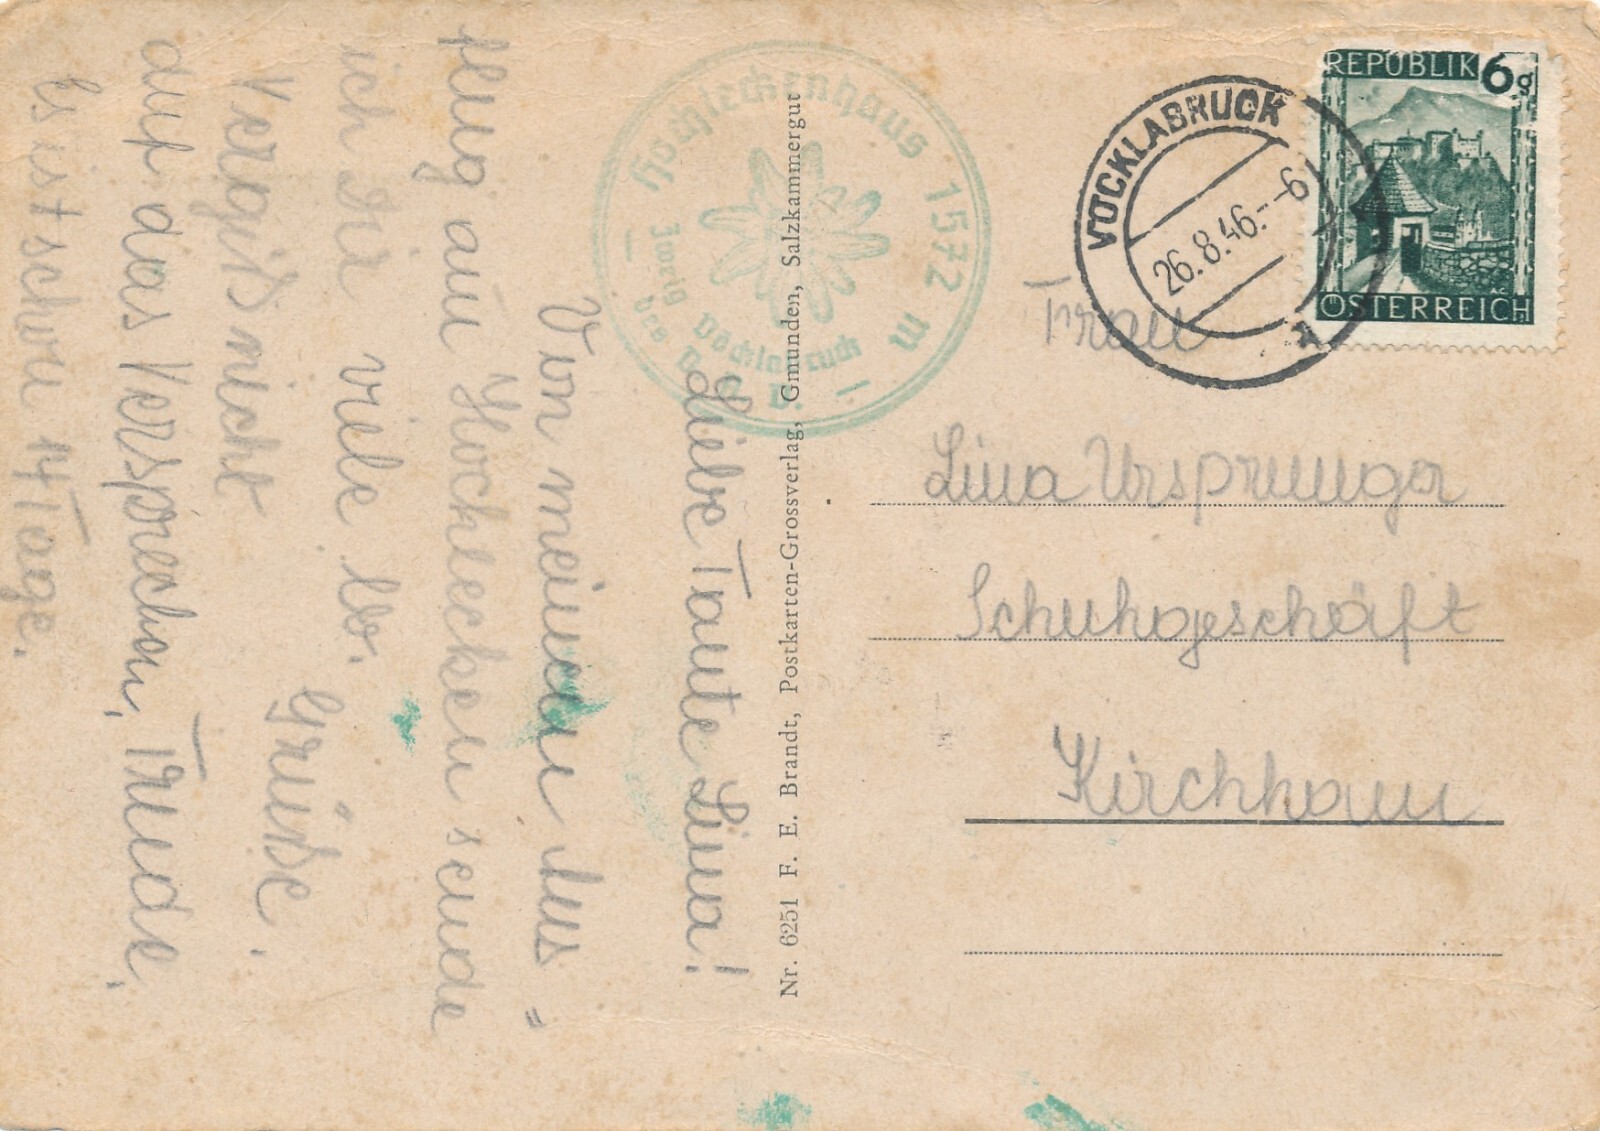 Liebe Tante Lina!
Von meinem Aus=
flug am Hochlecken sende
ich dir viele lb.
Grüße.
Vergiß nicht
auf das Versprechen, Trude.
Es ist schon 14 Tage.
Hochleckenhaus 1572 m
Zweig Vöcklabruck
des D. A. V.
Nr. 6251 F. E. Brandt, Postkarten-Grossverlag, Gmunden, Salzkammergut
VÖCKLABRUCK
26.8.46.--6
REPUBLIK 6g
ÖSTERREICH
Frau
Lina Ursprunger
Schuhgeschäft
Kirchham